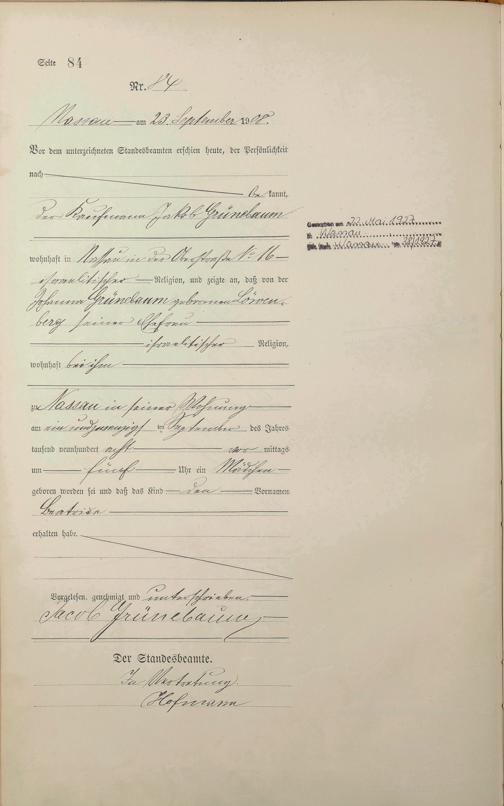 Seite 84
Nr. 84
Nassau am 23. September 1908.
Vor dem unterzeichneten Standesbeamten erschien heute, der Persönlichkeit
nach
be kannt,
der Kaufmann Jakob Grünebaum
wohnhaft in Nassau in der Oberstraße No 16
israelitischer Religion, und zeigte an, daß von der
Johanna Grünebaum geborenen Löwen-
berg seiner Ehefrau
israelitischer Religion,
wohnhaft bei ihm
zu Nassau in seiner Wohnung
am ein und zwanzigsten September des Jahres
tausend neunhundert acht vor mittags
um fünf Uhr ein Mädchen
geboren worden sei und daß das Kind den Vornamen
Beatrice
erhalten habe.
Vorgelesen, genehmigt und unterschrieben.
Jacob Grünebaum
Der Standesbeamte.
In Vertretung
Hofmann
22 Mai 1927
Nassau
Nassau